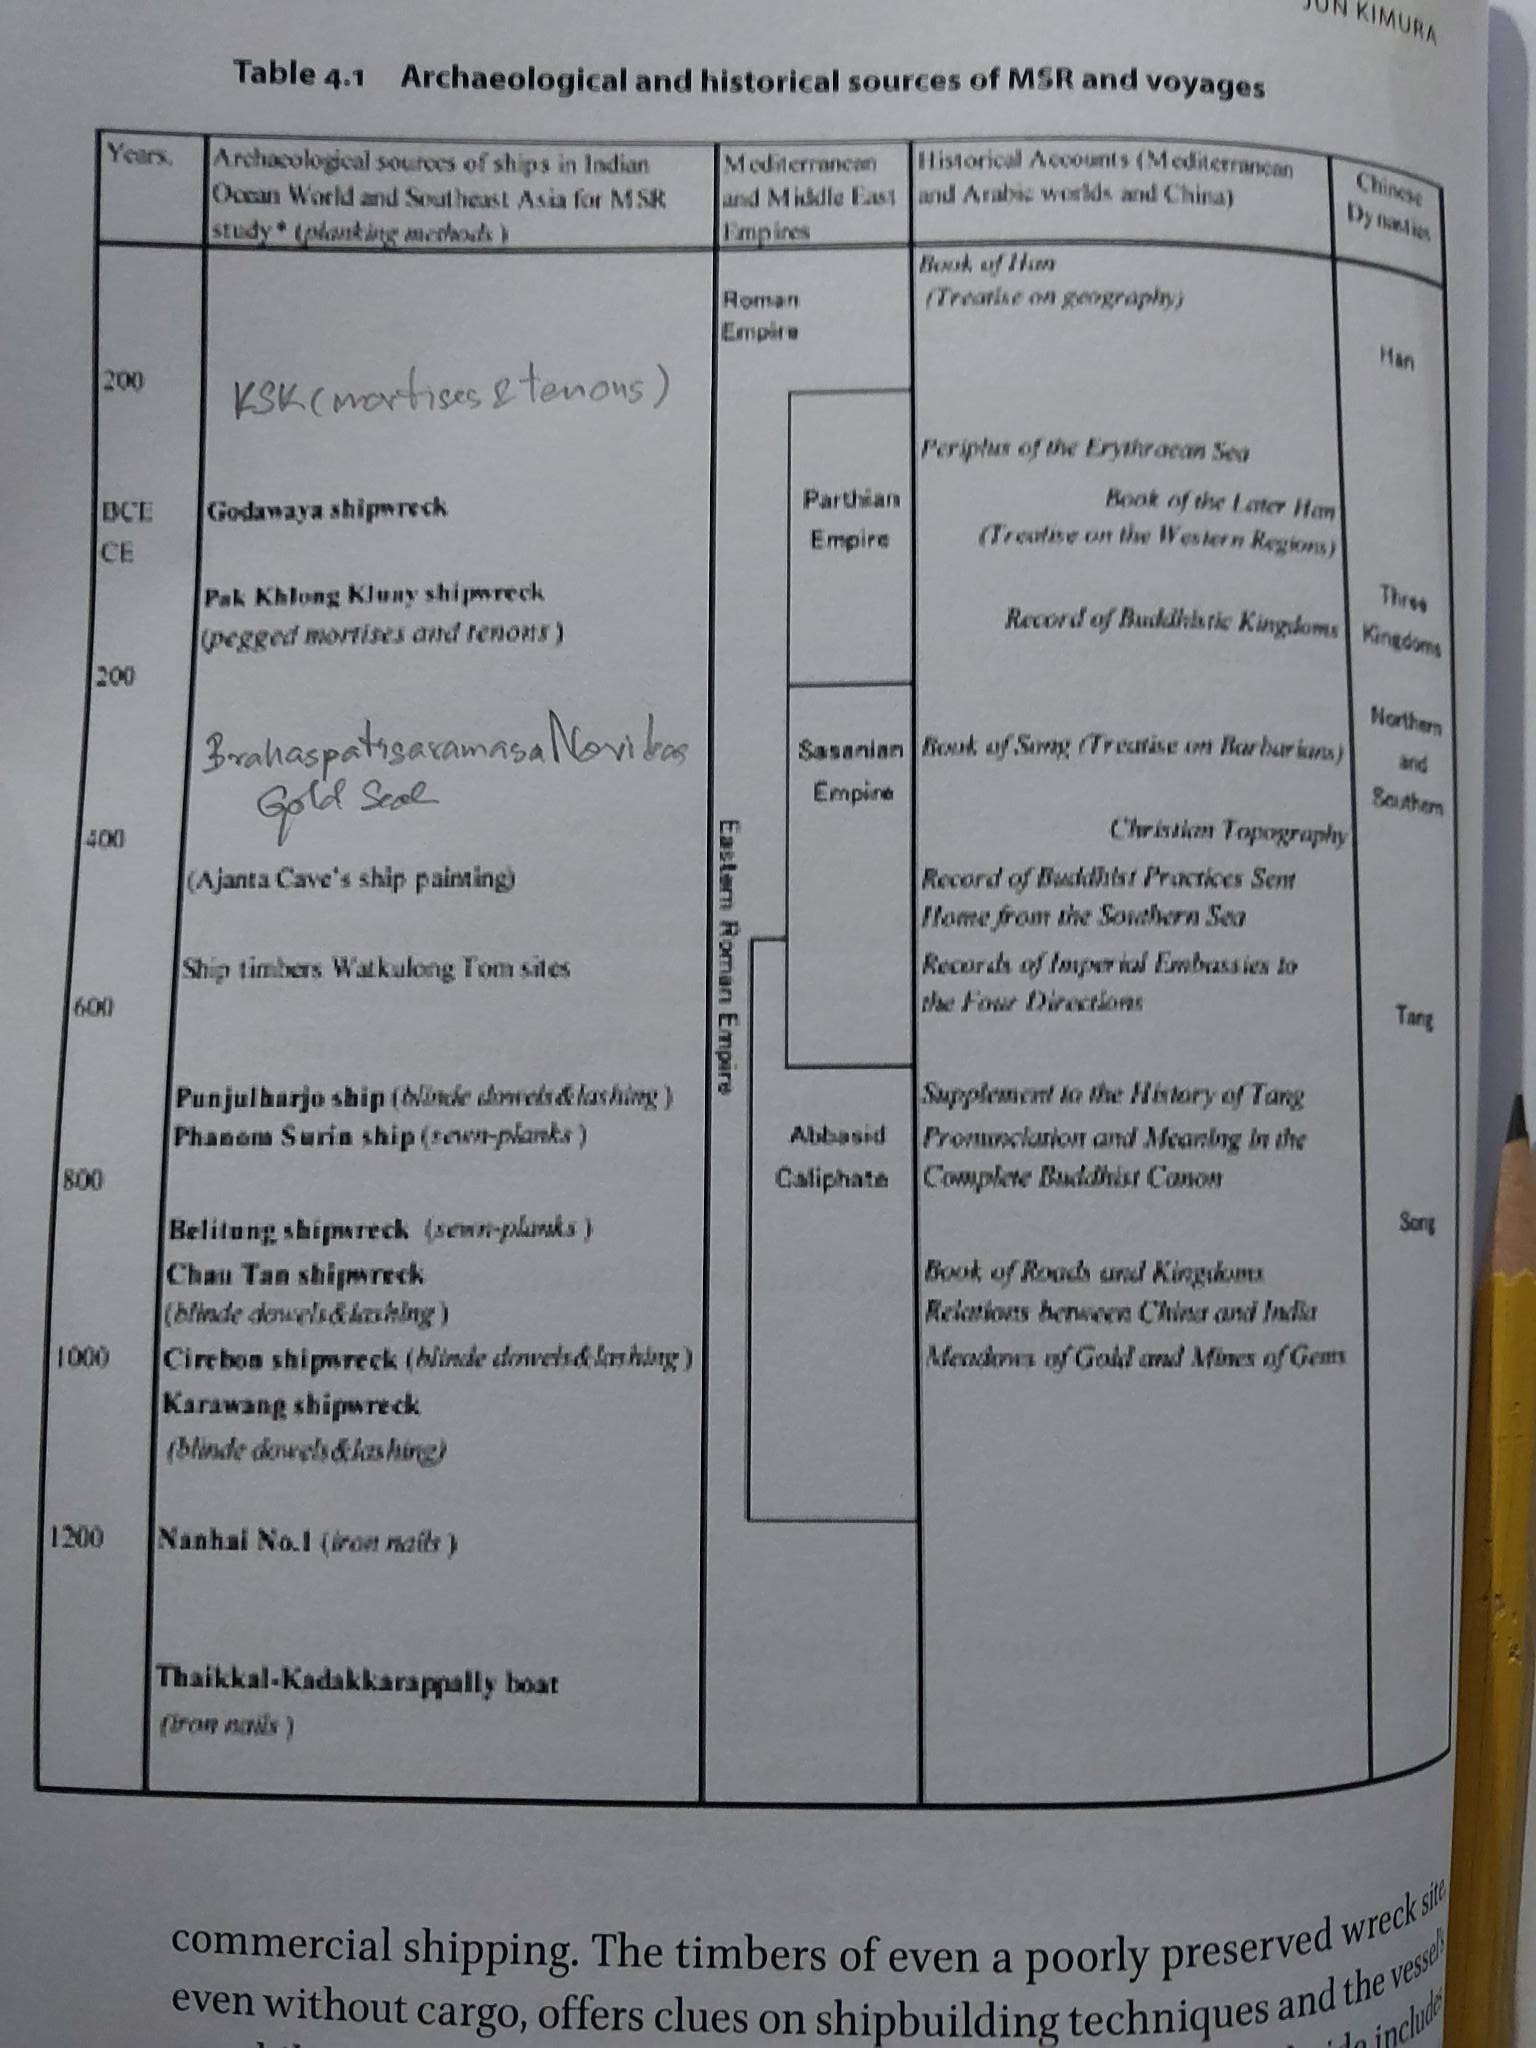 JUN KIMURA
Table 4.1 Archaeological and historical sources of MSR and voyages
Years.
Archaeological sources of ships in Indian
Ocean World and Southeast Asia for MSR
study* (planking methods)
Mediterranean
and Middle East
Empires
Historical Accounts (Mediterranean
and Arabic worlds and China)
Chinese
Dynasties
Book of Han
(Treatise on geography)
Roman
Empire
Han
200
KSK (mortises & tenons)
Periplus of the Erythraean Sea
BCE
Godawaya shipwreck
Parthian
Empire
Book of the Later Han
(Treatise on the Western Regions)
CE
Pak Khlong Kluay shipwreck
(pegged mortises and tenons)
Record of Buddhistic Kingdoms
Three
Kingdoms
200
Brahaspatisaramasa Novikas
Gold Seal
Sasanian
Empire
Book of Song (Treatise on Barbarians)
Northern
and
Southern
400
Christian Topography
Eastern Roman Empire
(Ajanta Cave's ship painting)
Record of Buddhist Practices Sent
Home from the Southern Sea
Ship timbers Watkulong Tom sites
Records of Imperial Embassies to
the Four Directions
600
Tang
Punjulharjo ship (blinde dowels&lashing)
Supplement to the History of Tang
Phanom Surin ship (sewn-planks)
Abbasid
Caliphate
Pronunciation and Meaning in the
Complete Buddhist Canon
800
Belitung shipwreck (sewn-planks)
Song
Chau Tan shipwreck
(blinde dowels&lashing)
Book of Roads and Kingdoms
Relations between China and India
1000
Cirebon shipwreck (blinde dowels&lashing)
Meadows of Gold and Mines of Gems
Karawang shipwreck
(blinde dowels&lashing)
1200
Nanhai No.1 (iron nails)
Thaikkal-Kadakkarappally boat
(iron nails)
commercial shipping. The timbers of even a poorly preserved wreck site,
even without cargo, offers clues on shipbuilding techniques and the vessel's